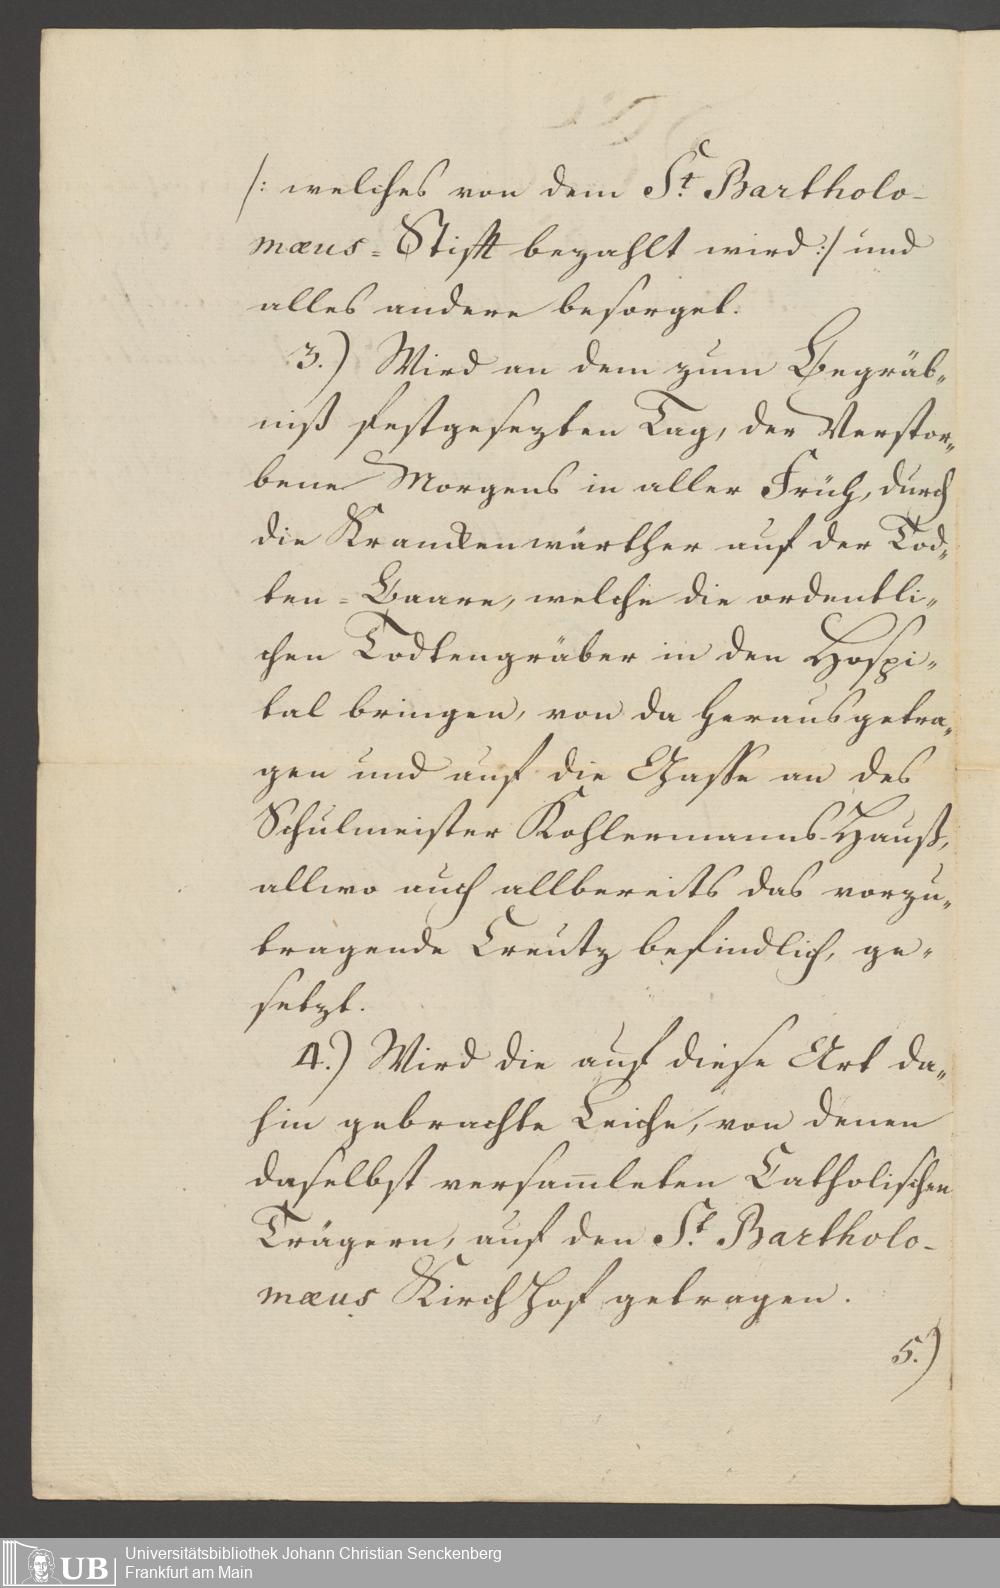 /: welches von dem St. Bartholo-
mæus=Stifft bezahlt wird :/ und
alles andere besorget.
3.) Wird an dem zum Begräb„
niß festgesezten Tag, der Verstor„
bene Morgens in aller Früh, durch
die Kranckenwärther auf der Tod„
ten=Baare, welche die ordentli„
chen Todtengräber in den Hospi„
tal bringen, von da herausgetra„
gen und auf die Gasse an des
Schulmeister Kohlermanns Hauß,
allwo auch allbereits das vorzu„
tragende Creutz befindlich, ge„
setzt.
4.) Wird die auf diese Art da„
hin gebrachte Leiche, von denen
daselbst versam̅leten Catholischen
Trägern, auf den St. Bartholo-
mæus Kirchhof getragen.
5.)
UB
Universitätsbibliothek Johann Christian Senckenberg
Frankfurt am Main